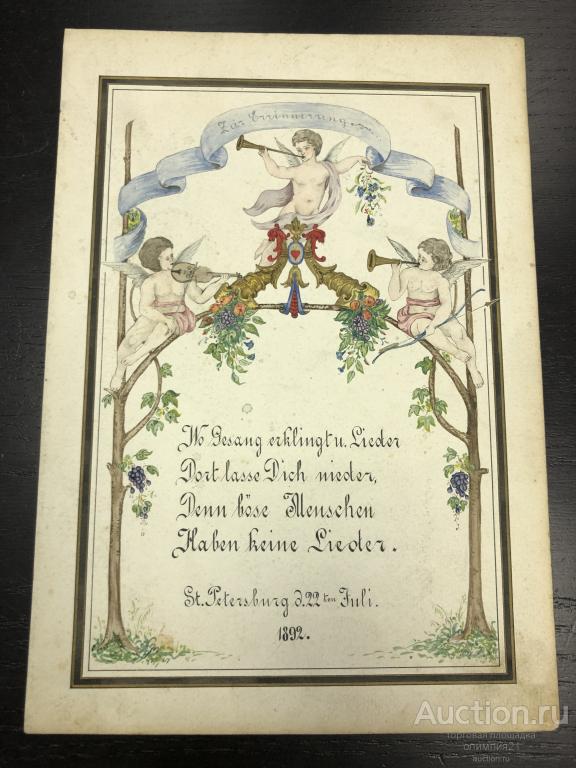 Zur Errinnerung
Wo Gesang erklingt u. Lieder
Dort lasse Dich nieder,
Denn böse Menschen
Haben keine Lieder.
St. Petersburg d. 22 ten Juli.
1892.
Auction.ru
торговая площадка
олимпия21
auction.ru